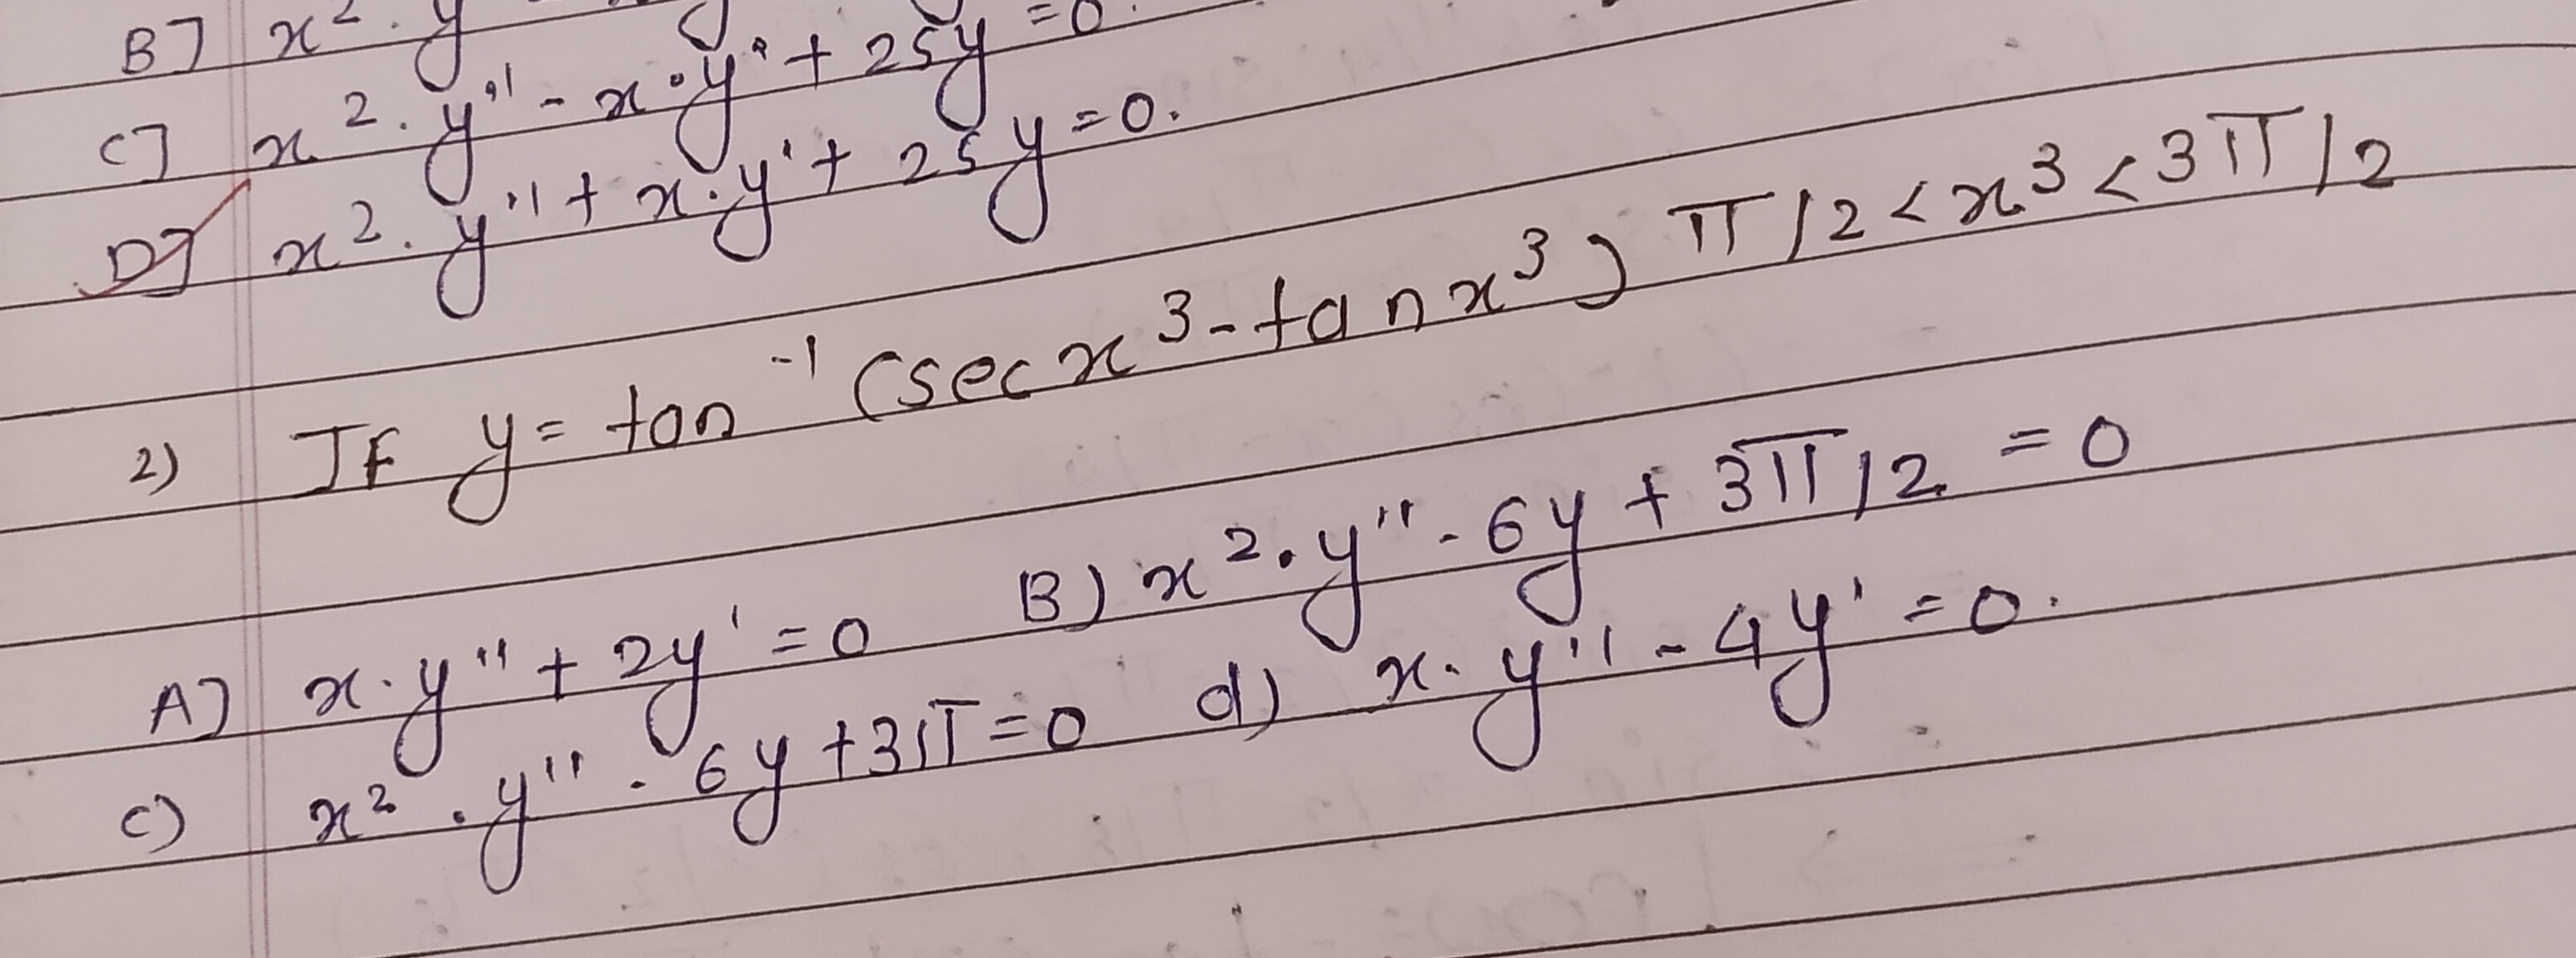 B] x². y
C] x². y'' - x.y' + 25y = 0.
D] x². y'' + x.y' + 25y = 0.
2) IF y = tan⁻¹ (sec x³ - tan x³) π/2 < x³ < 3π/2
A] x.y'' + 2y' = 0 B) x².y'' - 6y + 3π/2 = 0
C) x².y'' - 6y + 3π = 0 d) x.y'' - 4y' = 0.